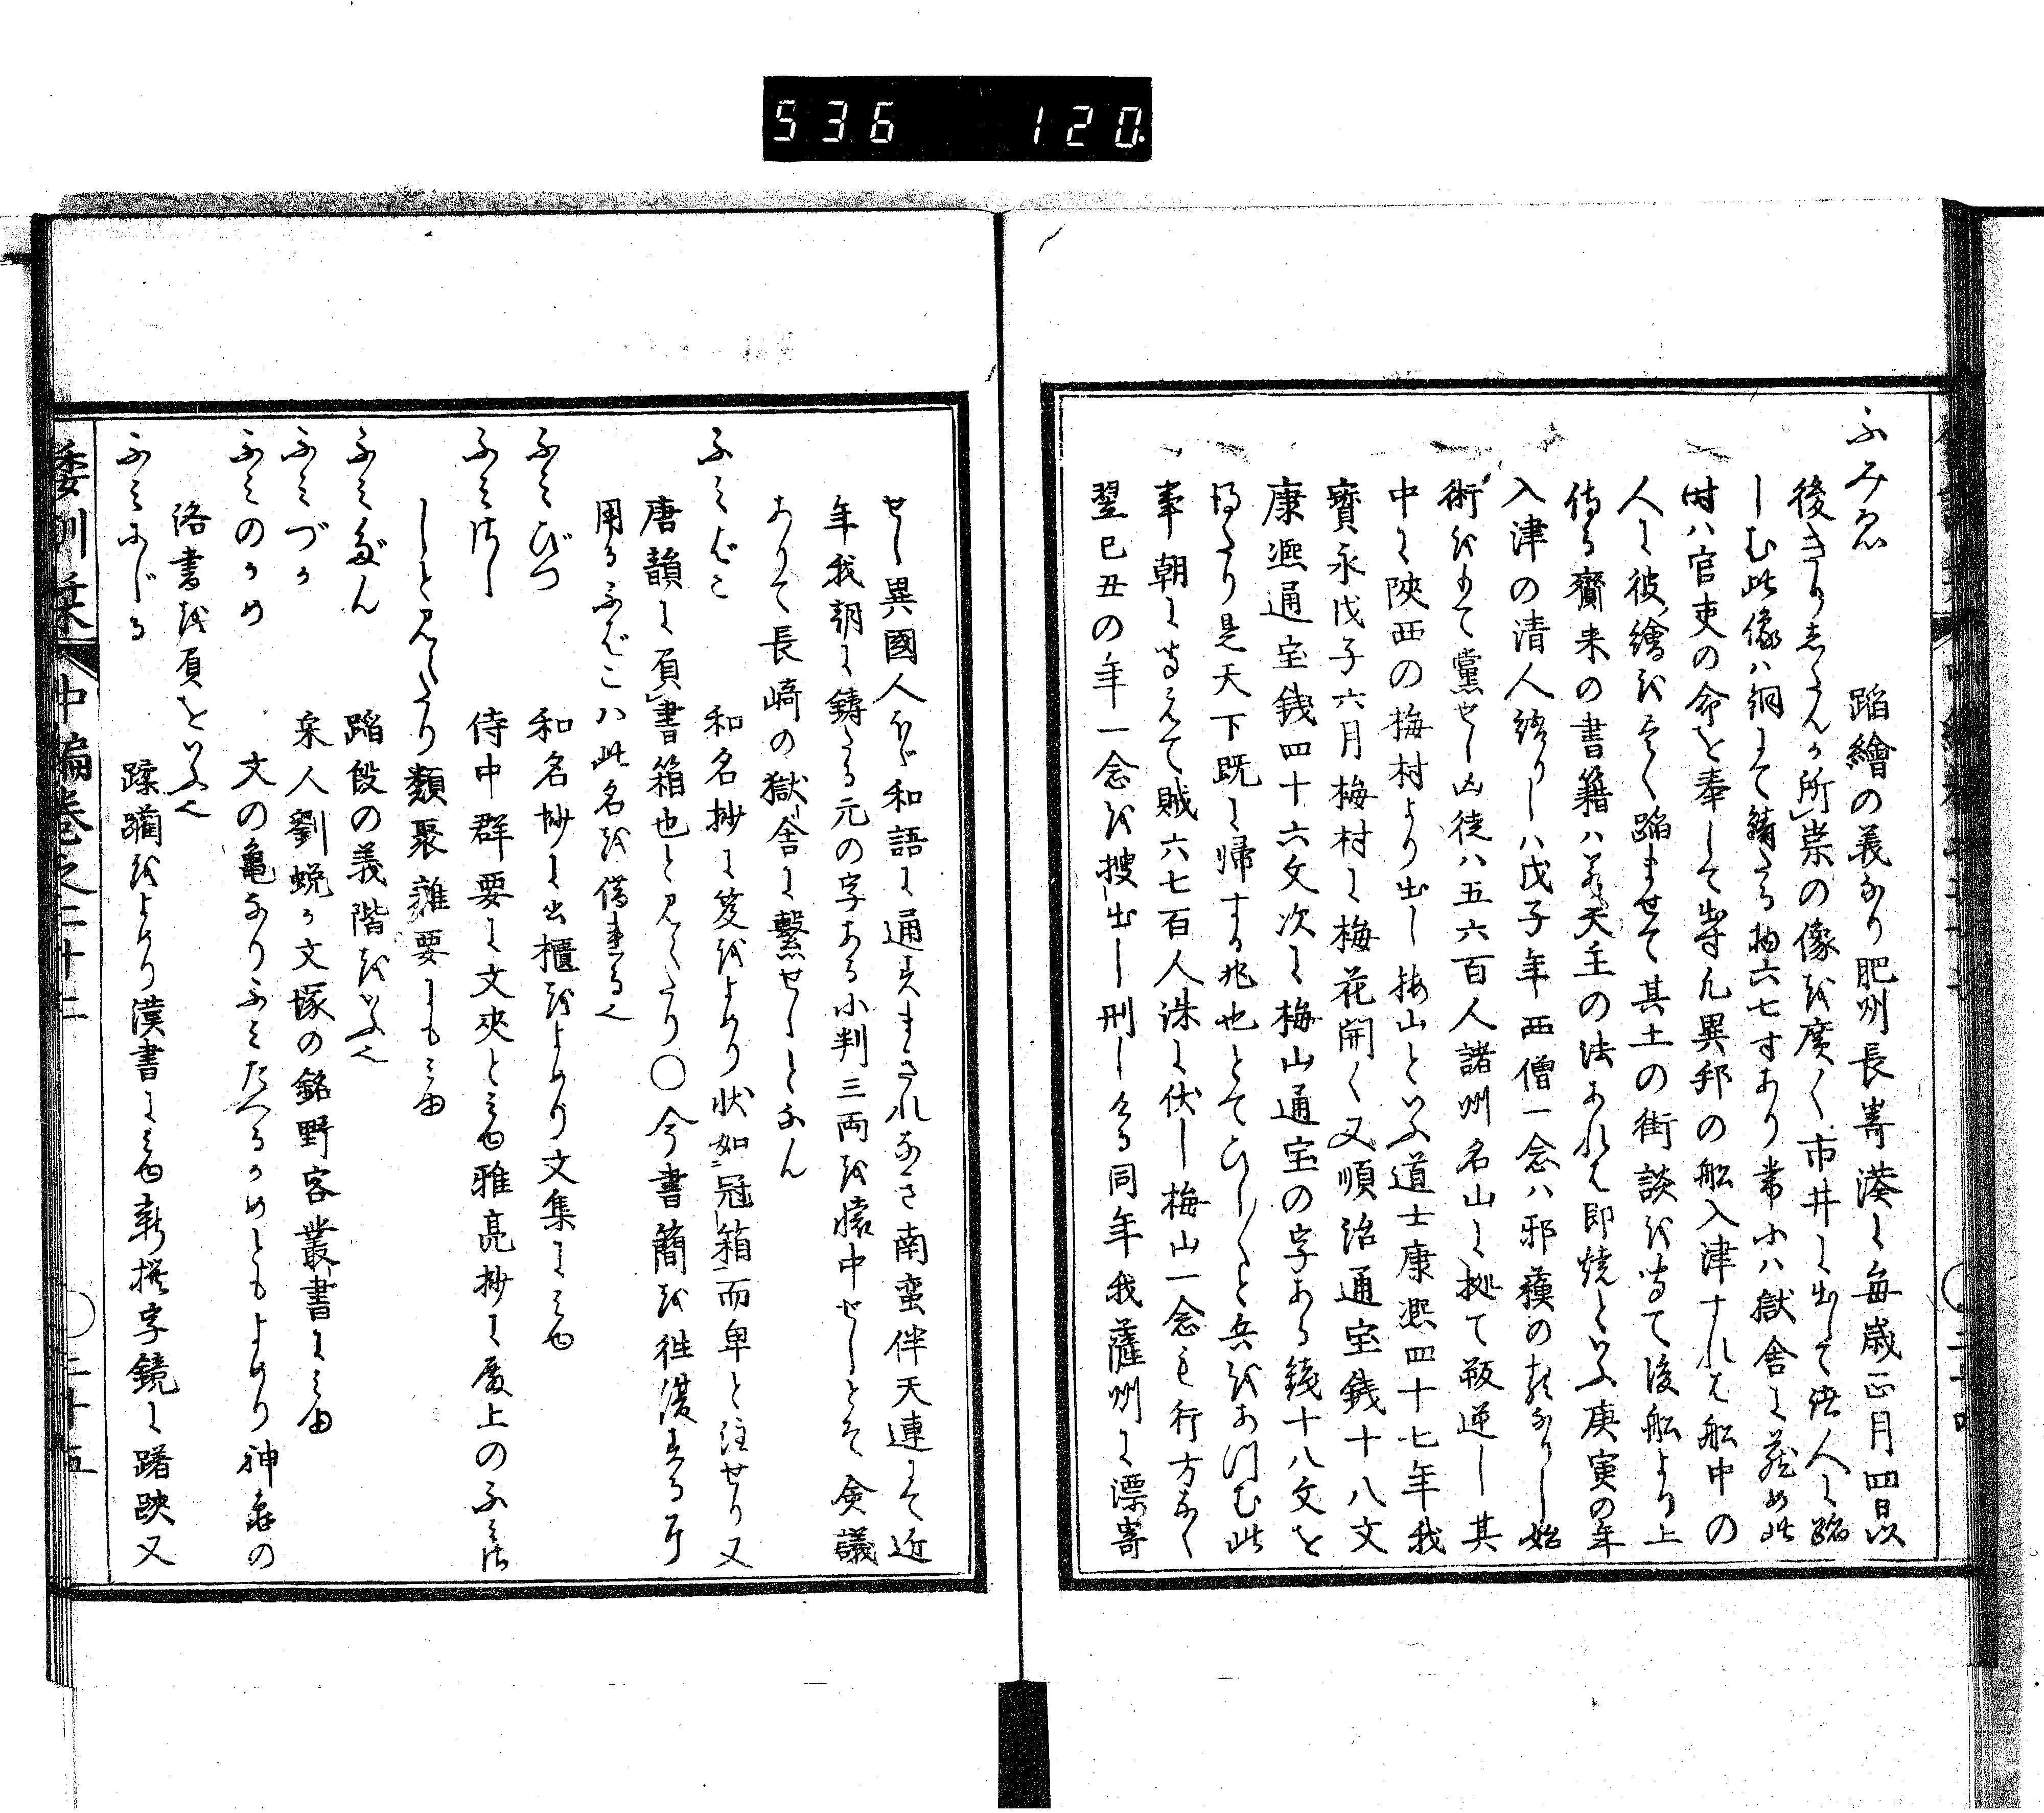 536 120
ふみゑ 蹈繪の義なり肥州長崎湊に毎歳正月四日以
後きりしたんの所崇の像を廣く市井に出して諸人に蹈
しむ此像ハ銅にて鋳たる物六七寸あり常にハ獄舎に蔵め此
時ハ官吏の命を奉して出す凡異邦の船入津すれは船中の
人に彼繪を蹈ませて其土の街談を尋て後船より上
侍る齎来の書籍ハ若天主の法あれは即焼といふ庚寅の年
入津の清人語りしハ戊子年西僧一念ハ邪蘓の なりし始
術をもて黨せし凶徒ハ五六百人諸州名山に拠て叛逆し其
中に陝西の梅村より出し梅山といふ道士康熙四十七年我
寳永戊子六月梅村に梅花開く又順治通宝銭十八文
康熙通宝銭四十六文次に梅山通宝の字ある銭十八文を
得たり是天下既に帰する兆也とてひしひしと兵をあつむ此
事朝に聞えて賊六七百人誅に伏し梅山一念も行方なく
翌己丑の年一念を捜出し刑しける同年我薩州に漂寄
せし異國人ハ和語に通しまきれなき南蛮伴天連にて近
年我朝に鋳たる元の字ある小判三両を懐中せしとそ僉議
ありて長崎の獄舎に繋せしとなん
ふみばこ 和名抄に笈をよめり状如冠箱而卑と註せり又
唐韻に負書箱也と見えたり〇今書簡を徃復する所
用るふばこハ此名を借れる也
ふみびつ 和名抄に出櫃をよめり文集に見ゆ
ふみはし 侍中群要に文夾と見ゆ雅亮抄に殿上のふみは
しと見えたり類聚雜要にも見ゆ
ふみだん 蹈段の義階をいふ也
ふみづか 宋人劉蛻か文塚の銘野客叢書に見ゆ
ふみのかめ 文の亀なりふみたへるかめともよめり神亀の
洛書を負をいふ也
ふみにじる 蹂躪をよめり漢書に見ゆ新撰字鏡に躇趺又
倭訓栞 中編巻之二十二 〇二十五